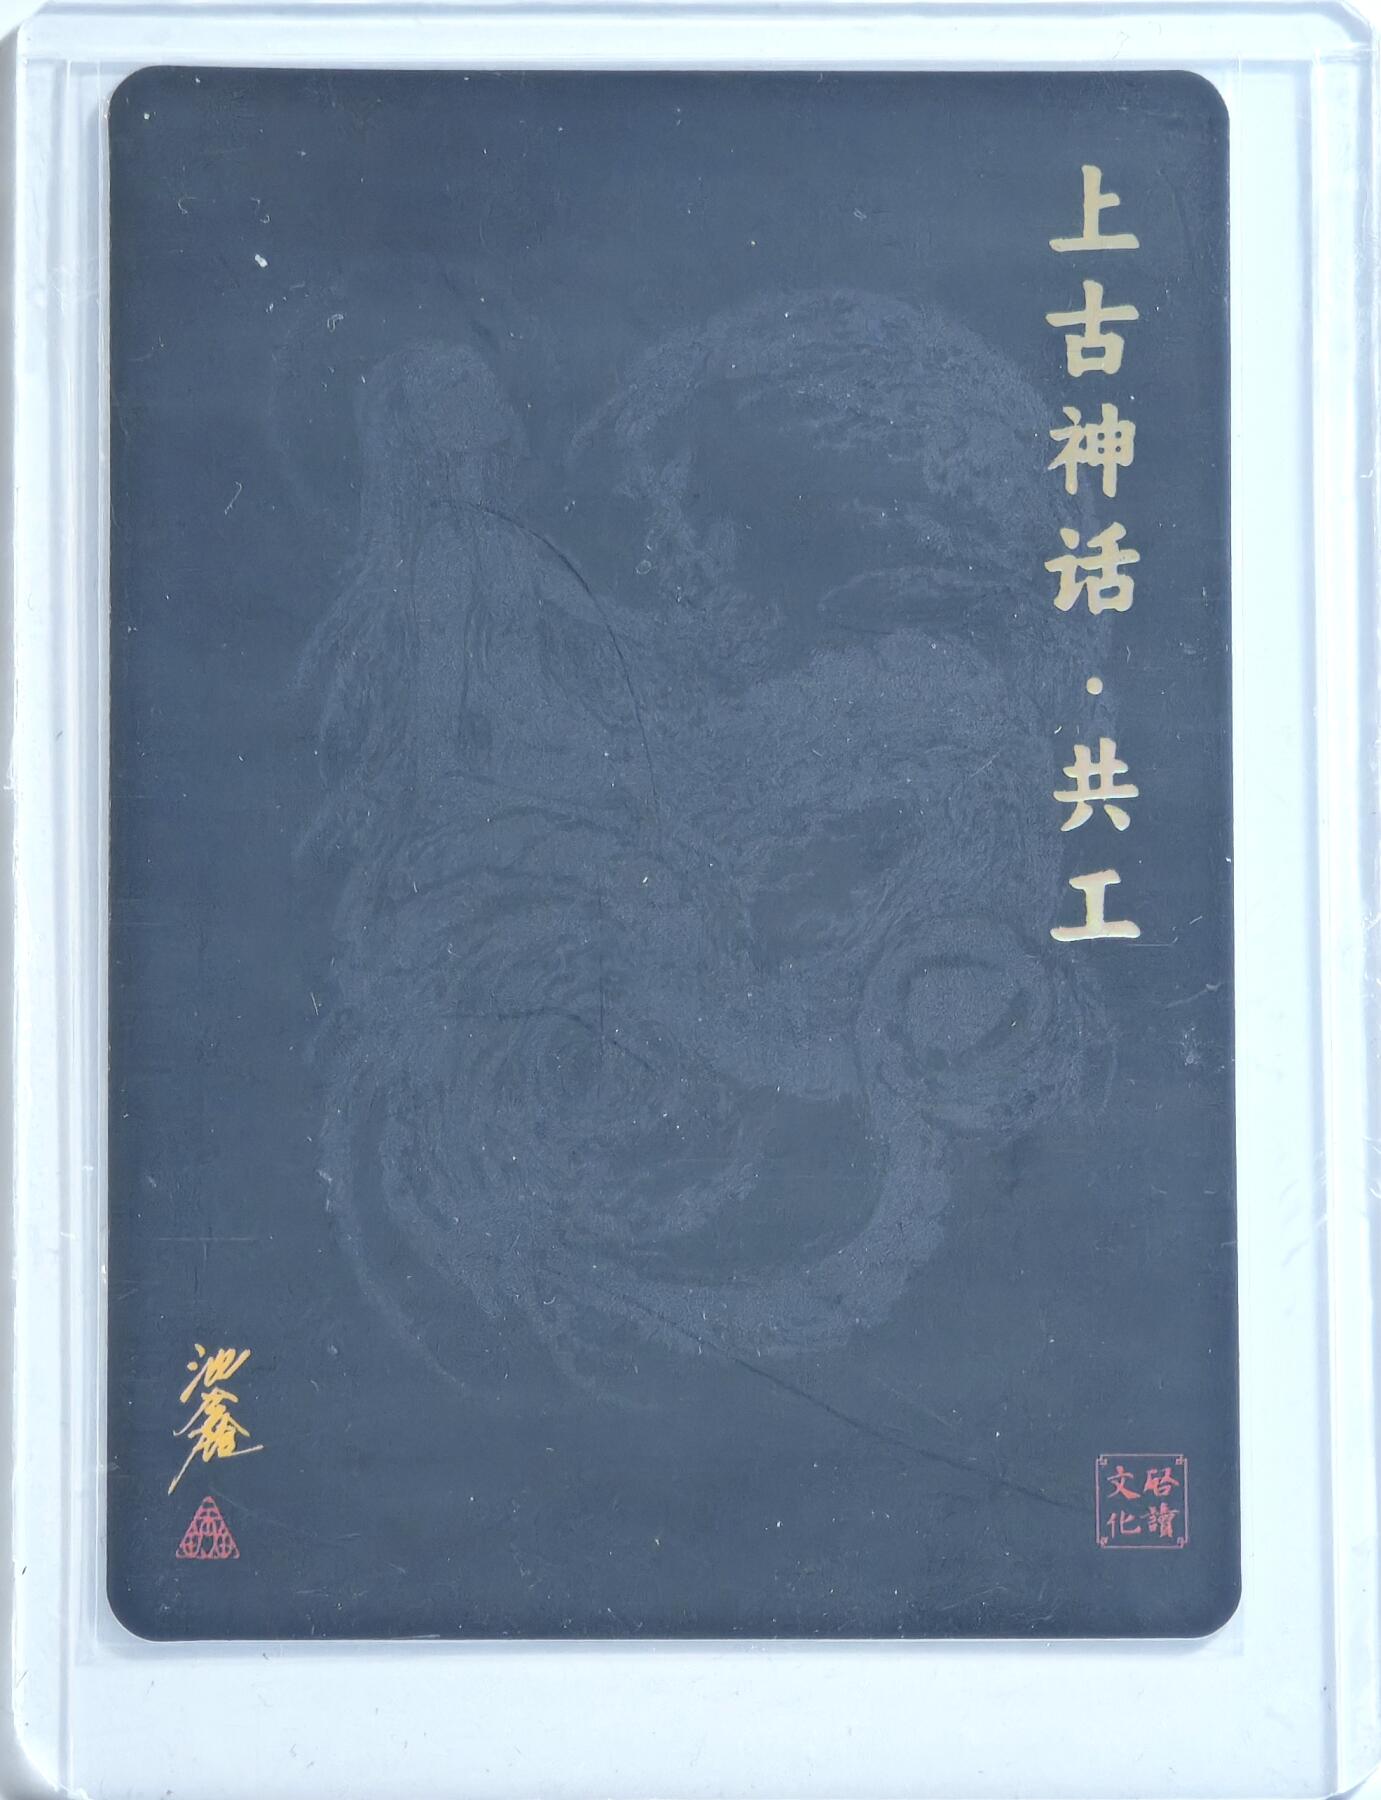 上古神话·共工
启讀
文化